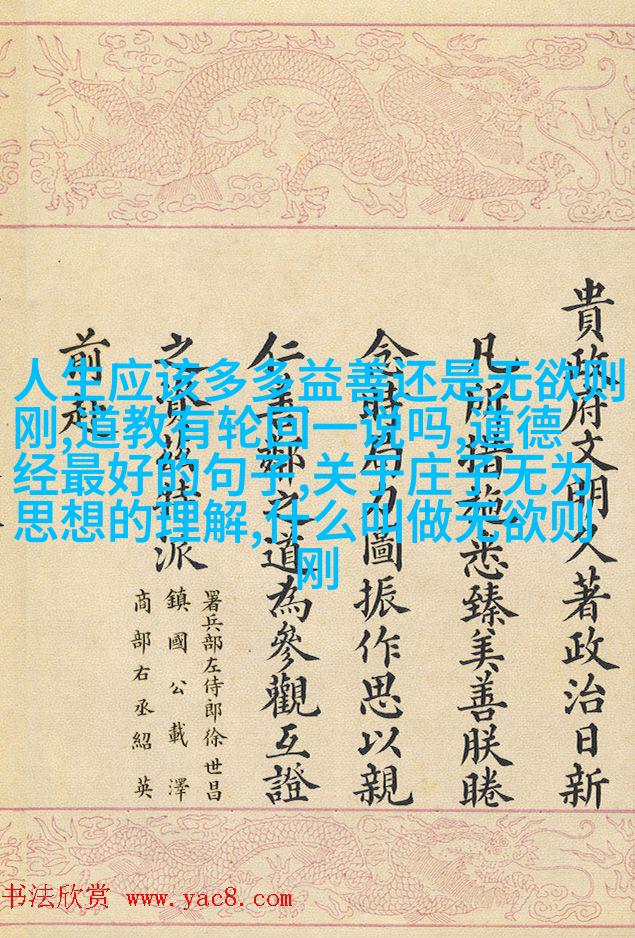 人生应该多多益善还是无欲则
刚,道教有轮回一说吗,道德
经最好的句子,关于庄子无为
思想的理解,什么叫做无欲则
刚
貴政府文明久著政治日新
凡所措施悉臻美善朕睠
念時局力圖振作思以親
仁善鄰之道為參觀互證
之資茲特派
署兵部左侍郎徐世昌
鎮國公載澤
商部右丞紹英
前赴
书法欣赏 www.yac8.com